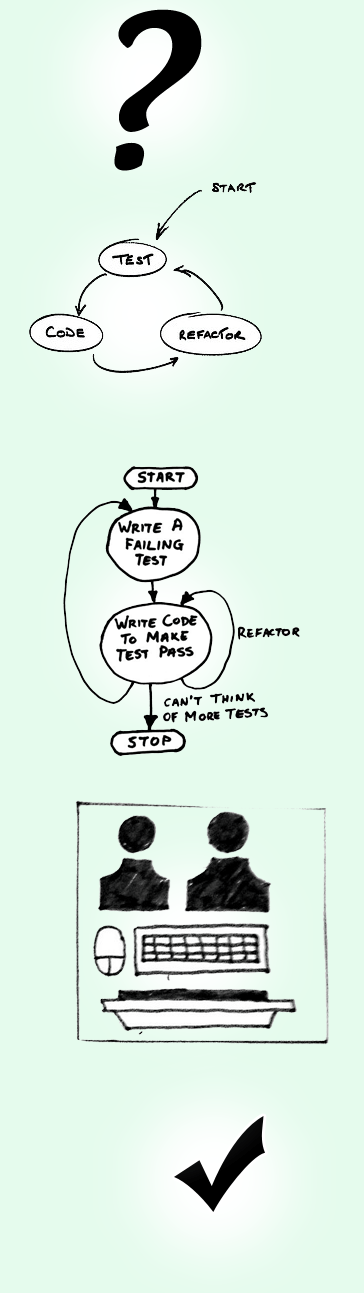 ?
START
TEST
CODE
REFACTOR
START
WRITE A
FAILING
TEST
WRITE CODE
TO MAKE
TEST PASS
REFACTOR
CAN'T THINK
OF MORE TESTS
STOP